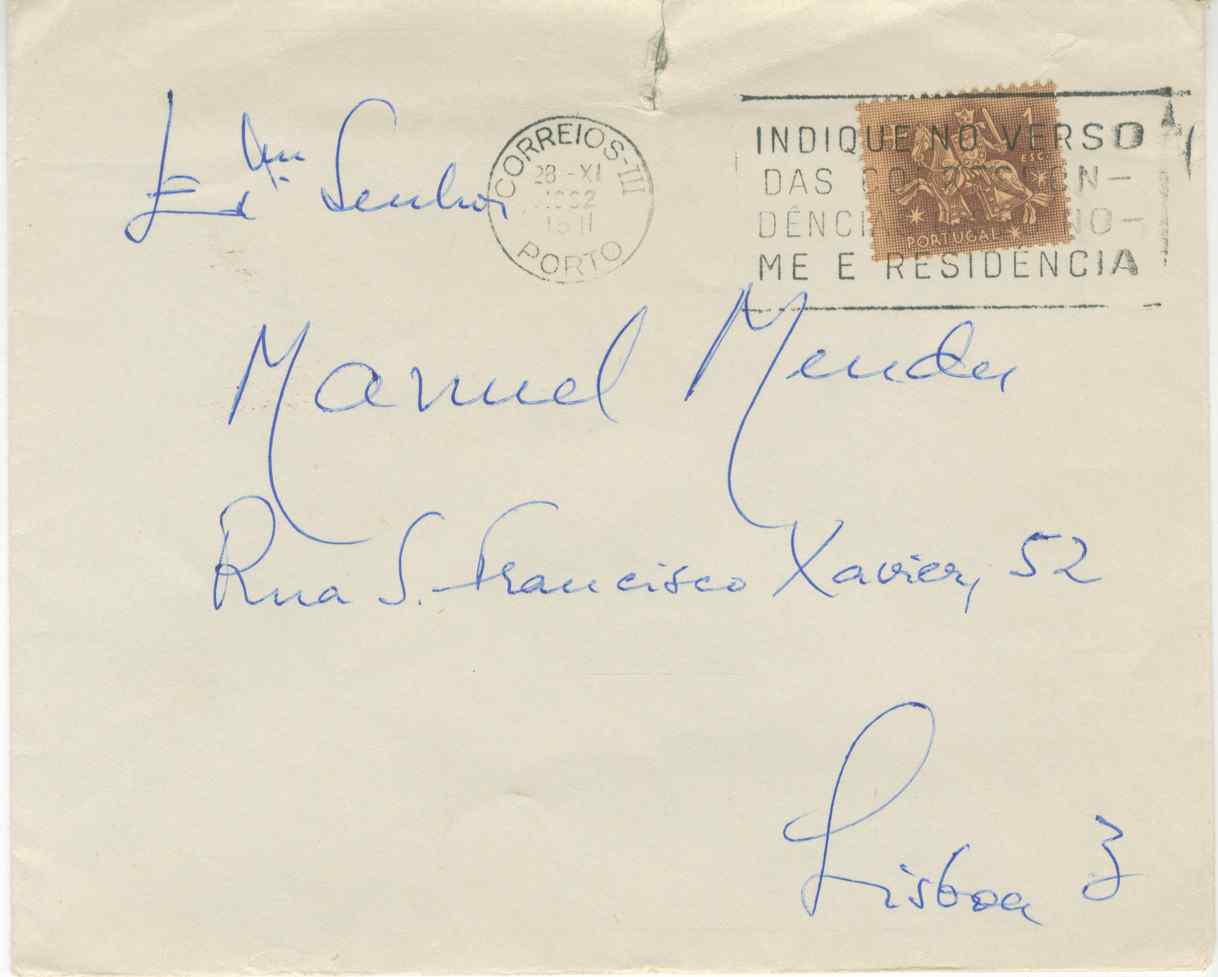 Exmo. Senhor
CORREIOS-III
28-XI
1962
PORTO
INDIQUE NO VERSO
DAS CORRESPON-
DÊNCIAS O NO-
ME E RESIDÊNCIA
1
ESC.
PORTUGAL
Manuel Mendes
Rua S. Francisco Xavier, 52
Lisboa 3